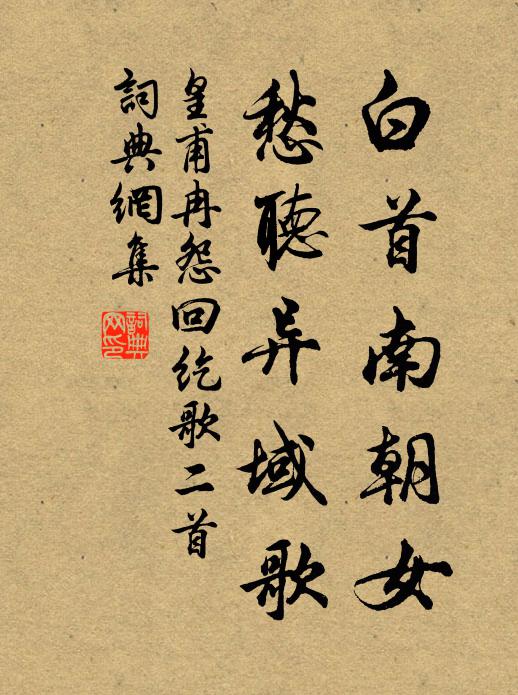 白首南朝女
愁聽异域歌
皇甫冉怨回紇歌二首
詞典網集
詞典网印